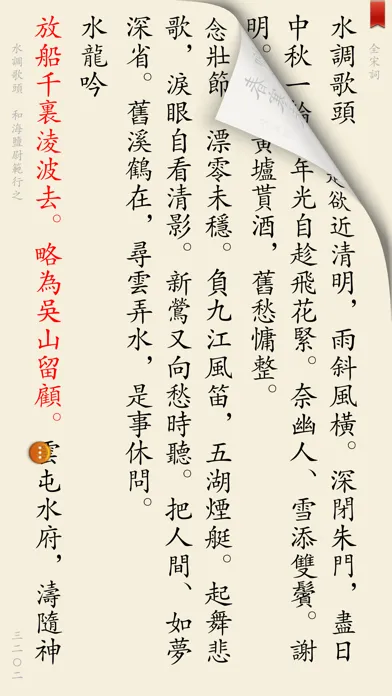 全宋詞
水調歌頭 欲近清明，雨斜風橫。深閉朱門，盡日
中秋一 年光自趁飛花緊。奈幽人、雪添雙鬢。謝
明。 黃壚貰酒，舊愁慵整。
念壯節漂零未穩。負九江風笛，五湖煙艇。起舞悲
歌，淚眼自看清影。新鶯又向愁時聽。把人間、如夢
深省。舊溪鶴在，尋雲弄水，是事休問。
水龍吟
放船千裏淩波去。略為吳山留顧。雲屯水府，濤隨神
水調歌頭 和海鹽尉範行之
三二〇二